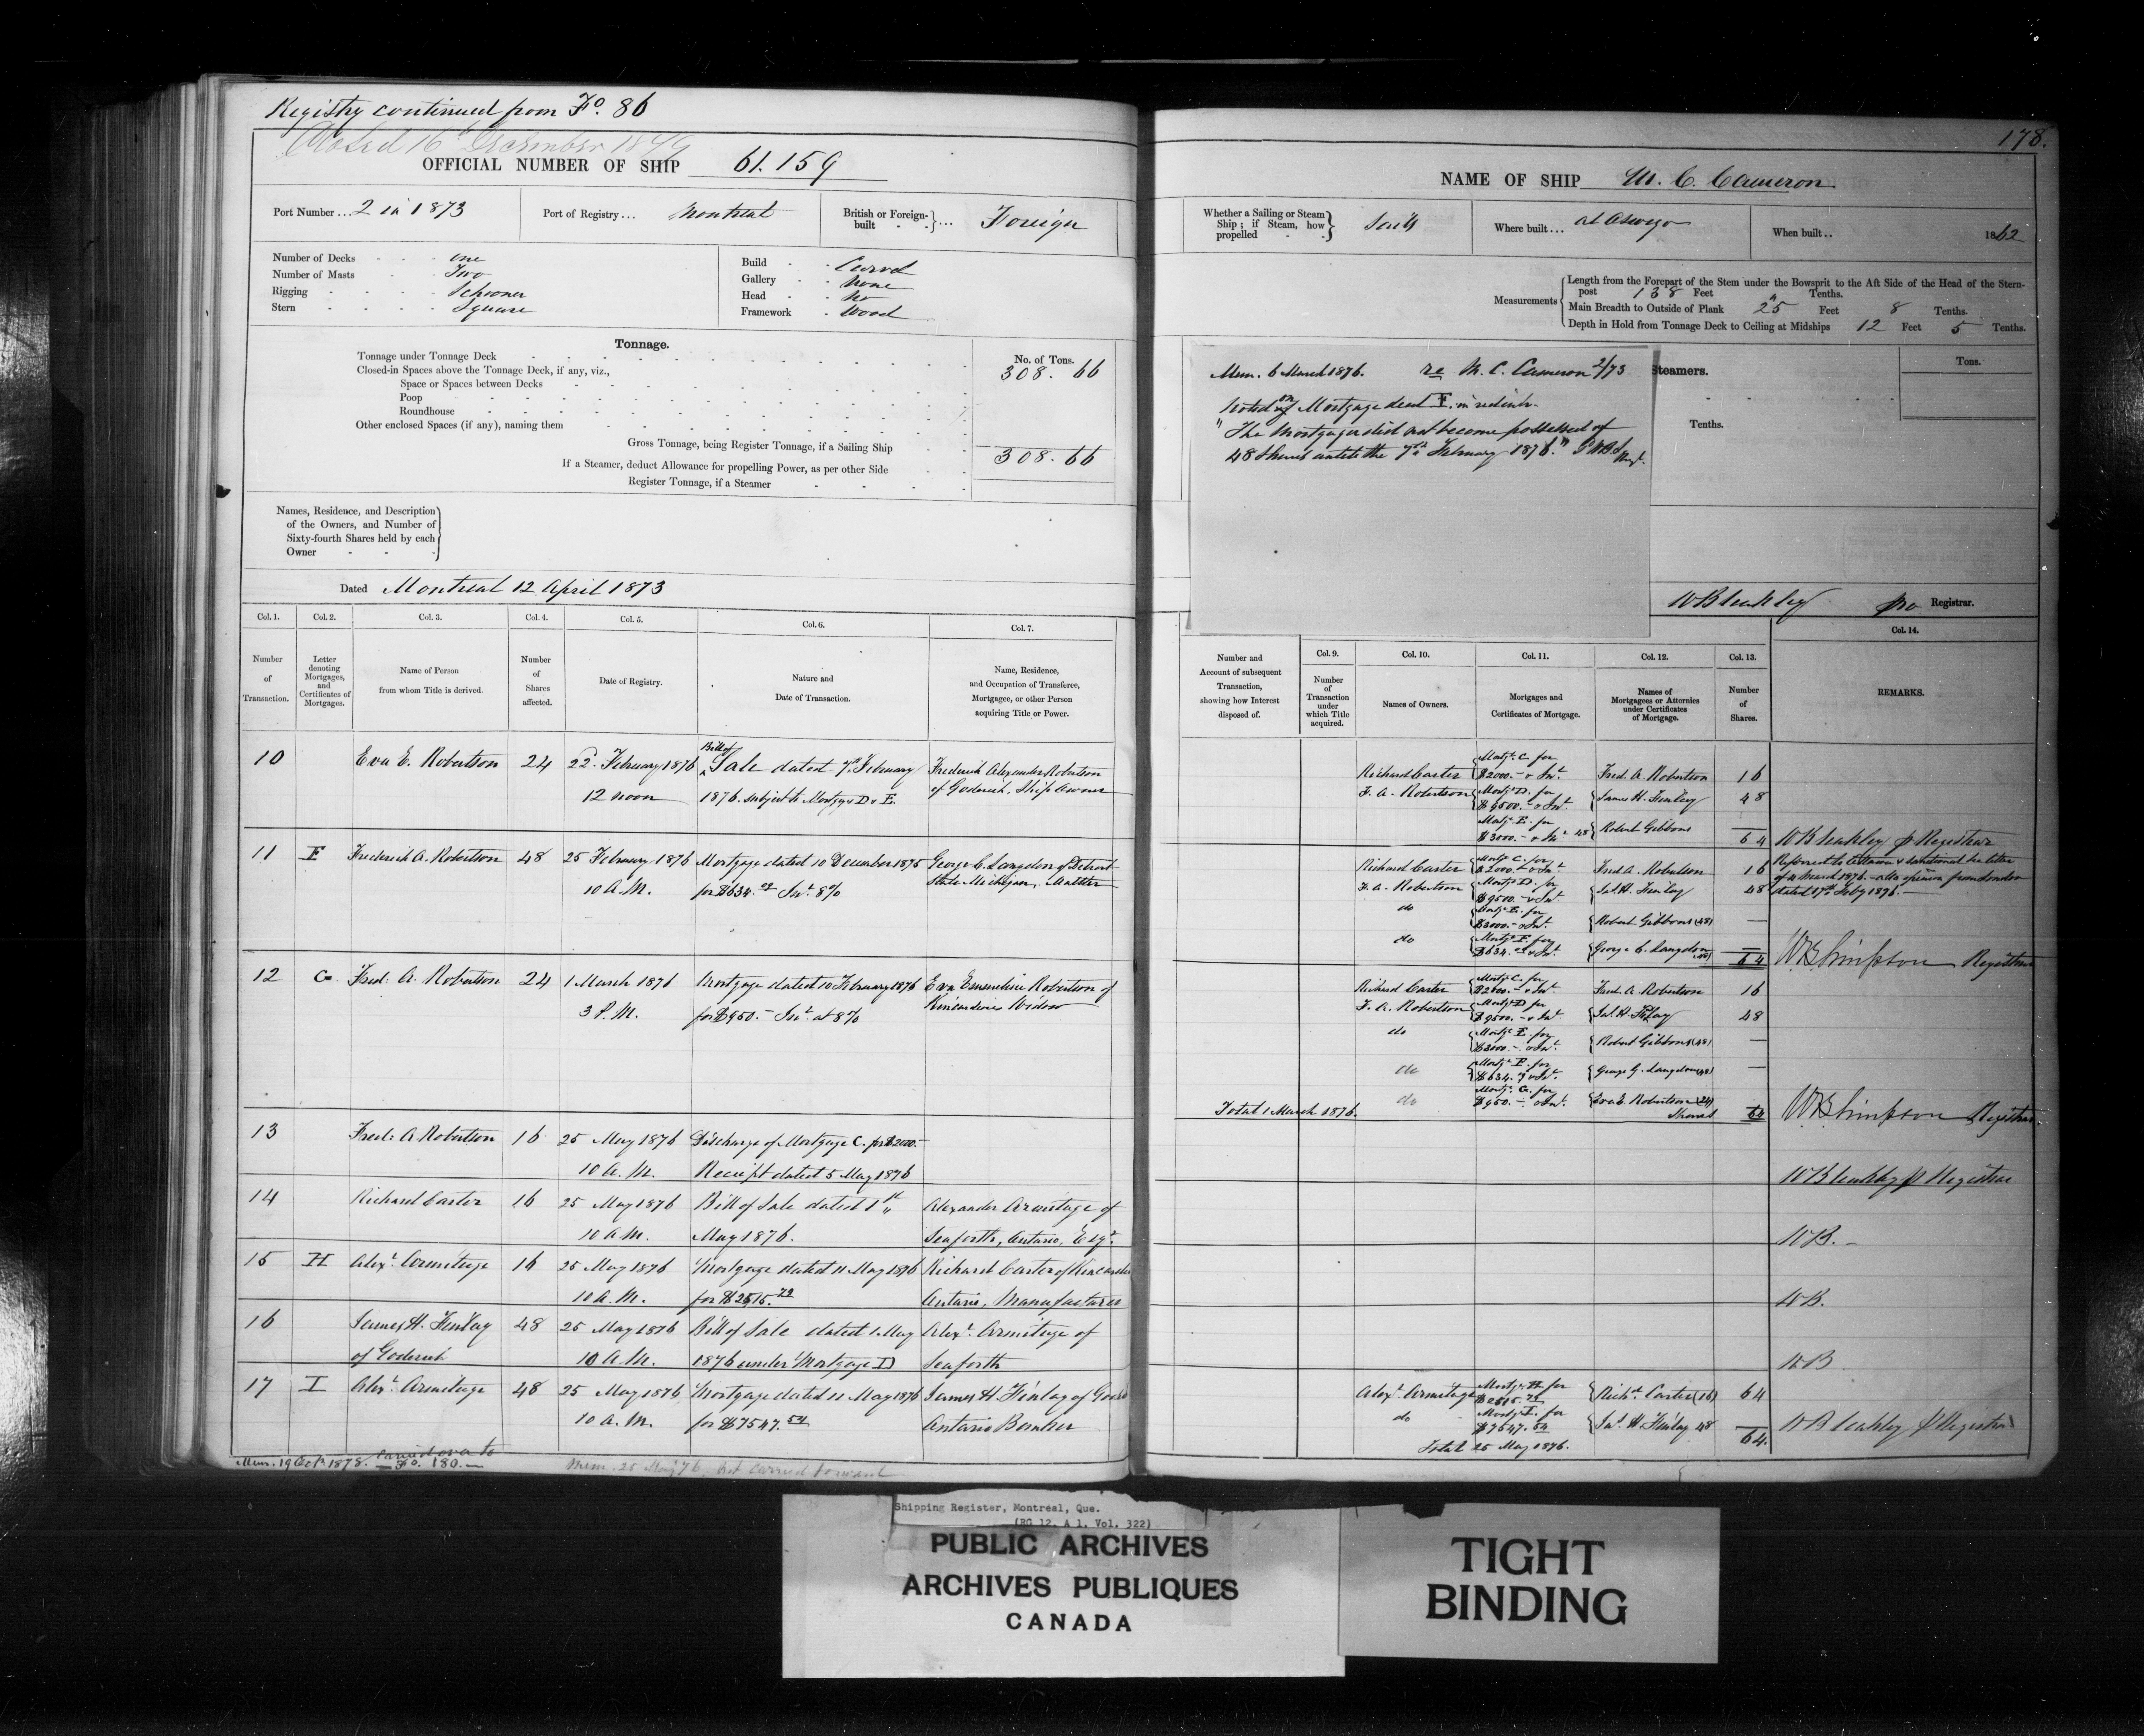 Registry continued from Fo. 86
Closed 16 December 1879
OFFICIAL NUMBER OF SHIP 61.159
Port Number... 2 in 1873 Port of Registry... Montreal British or Foreign-built Foreign
Number of Decks one
Number of Masts Two
Rigging Schooner
Stern Square
Build Carvel
Gallery None
Head No
Framework Wood
Tonnage.
No. of Tons.
Tonnage under Tonnage Deck 308. 66
Closed-in Spaces above the Tonnage Deck, if any, viz.,
Space or Spaces between Decks
Poop
Roundhouse
Other enclosed Spaces (if any), naming them
Gross Tonnage, being Register Tonnage, if a Sailing Ship 308. 66
If a Steamer, deduct Allowance for propelling Power, as per other Side
Register Tonnage, if a Steamer
Names, Residence, and Description
of the Owners, and Number of
Sixty-fourth Shares held by each
Owner
Dated Montreal 12 April 1873
Col. 1. Col. 2. Col. 3. Col. 4. Col. 5. Col. 6. Col. 7.
Number of Transaction.
Letter denoting Mortgages, and Certificates of Mortgages.
Name of Person from whom Title is derived.
Number of Shares affected.
Date of Registry.
Nature and Date of Transaction.
Name, Residence, and Occupation of Transferee, Mortgagee, or other Person acquiring Title or Power.
10 Eva E. Robertson 24 22. February 1876 Bill of Sale dated 7th February Frederick Alexander Robertson
12 noon 1876. subject to Mortges D & E. of Goderich, Ship Owner
11 F Frederick A. Robertson 48 25 February 1876 Mortgage dated 10 December 1875 George C. Langdon of Detroit
10 A.M. for $634. Int. 8% State Michigan, Maltster
12 G Fred: A. Robertson 24 1 March 1876 Mortgage dated 10 February 1876 Eva Emmeline Robertson of
3 P.M. for $950.- Int. at 8% Kincardine Widow
13 Fred: A Robertson 16 25 May 1876 Discharge of Mortgage C. for $2000.-
10 A.M. Receipt dated 5 May 1876
14 Richard Carter 16 25 May 1876 Bill of Sale dated 1st Alexander Armitage of
10 A.M. May 1876. Seaforth, Ontario, Esqr.
15 H Alexr. Armitage 16 25 May 1876 Mortgage dated 11 May 1876 Richard Carter of Kincardine
10 A.M. for $2515.72 Ontario, Manufacturer
16 James H. Finlay 48 25 May 1876 Bill of Sale dated 1 May Alexr. Armitage of
of Goderich 10 A.M. 1876 under Mortgage D Seaforth
17 I Alexr. Armitage 48 25 May 1876 Mortgage dated 11 May 1876 James H. Finlay of
10 A.M. for $7547.54 Ontario Banker
Mem. 19 Oct. 1878. carried over to Fo. 180.
Mem. 25 May 76, not carried forward
178.
NAME OF SHIP M. C. Cameron.
Whether a Sailing or Steam Ship; if Steam, how propelled Sail Where built... at Oswego When built.. 1862
Measurements
Length from the Forepart of the Stem under the Bowsprit to the Aft Side of the Head of the Stern-
post 138 Feet Tenths.
Main Breadth to Outside of Plank 25 Feet 8 Tenths.
Depth in Hold from Tonnage Deck to Ceiling at Midships 12 Feet 5 Tenths.
Mem. 6 March 1876. re M. C. Cameron 2/73
Noted on Mortgage deed F. in red ink.
"The Mortgager did not become possessed of
48 Shares until the 7th February 1876."
Steamers.
Tons.
Tenths.
W B leakley pro Registrar.
Number and Account of subsequent Transaction, showing how Interest disposed of.
Col. 9. Col. 10. Col. 11. Col. 12. Col. 13. Col. 14.
Number of Transaction under which Title acquired.
Names of Owners.
Mortgages and Certificates of Mortgage.
Names of Mortgagees or Attornies under Certificates of Mortgage.
Number of Shares.
REMARKS.
Richard Carter Mortge. C. for $2000.- & Int. Fred. A. Robertson 16
F. A. Robertson Mortge. D. for $9500.- & Int. James H. Finlay 48
Mortge. E. for $3000.- & Int. 48 Robert Gibbons 64 W B leakley p Registrar
Richard Carter Mortge C. for $2000.- & Int. Fred A. Robertson 16 Referred to Ottawa & sanctioned
F. A. Robertson Mortge. D. for $9500.- & Int. Jas. H. Finlay 48 dated 17th Feby 1876.-
do Mortge. E. for $3000.- & Int. Robert Gibbons (48)
do Mortge. F. for $634. & Int. George C. Langdon (48) 64 WB Simpson Registrar
Richard Carter Mortge C. for $2000.- & Int. Fred. A. Robertson 16
F. A. Robertson Mortge. D for $9500.- & Int. Jas. H. Finlay 48
do Mortge. E. for $3000.- & Int. Robert Gibbons (48)
do Mortge. F. for $634. & Int. George G. Langdon (48)
do Mortge. G. for $950.- & Int. Eva E. Robertson (24)
Total 1 March 1876. Shares 64 WB Simpson Registrar.
W B leakley p Registrar
W B.-
W B.
W B
Alexr. Armitage Mortge. H. for $2515.72 Richd. Carter (16) 64
do Mortge. I. for $7547.54 Jas. H. Finlay 48 W B leakley p Registrar
Total 25 May 1876. 64.
Shipping Register, Montreal, Que.
(RG 12, A 1, Vol. 322)
PUBLIC ARCHIVES
ARCHIVES PUBLIQUES
CANADA
TIGHT
BINDING